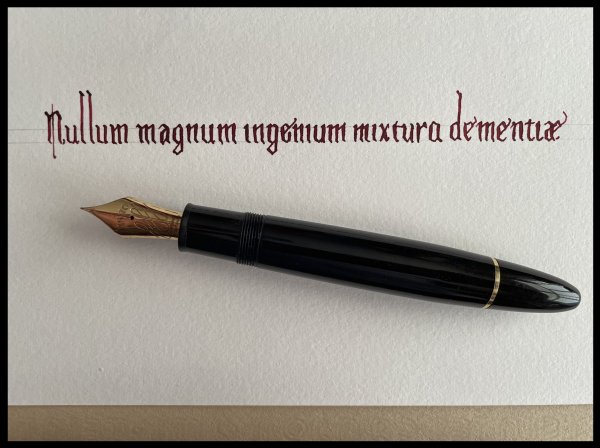 Nullum magnum ingenium mixtura dementiæ